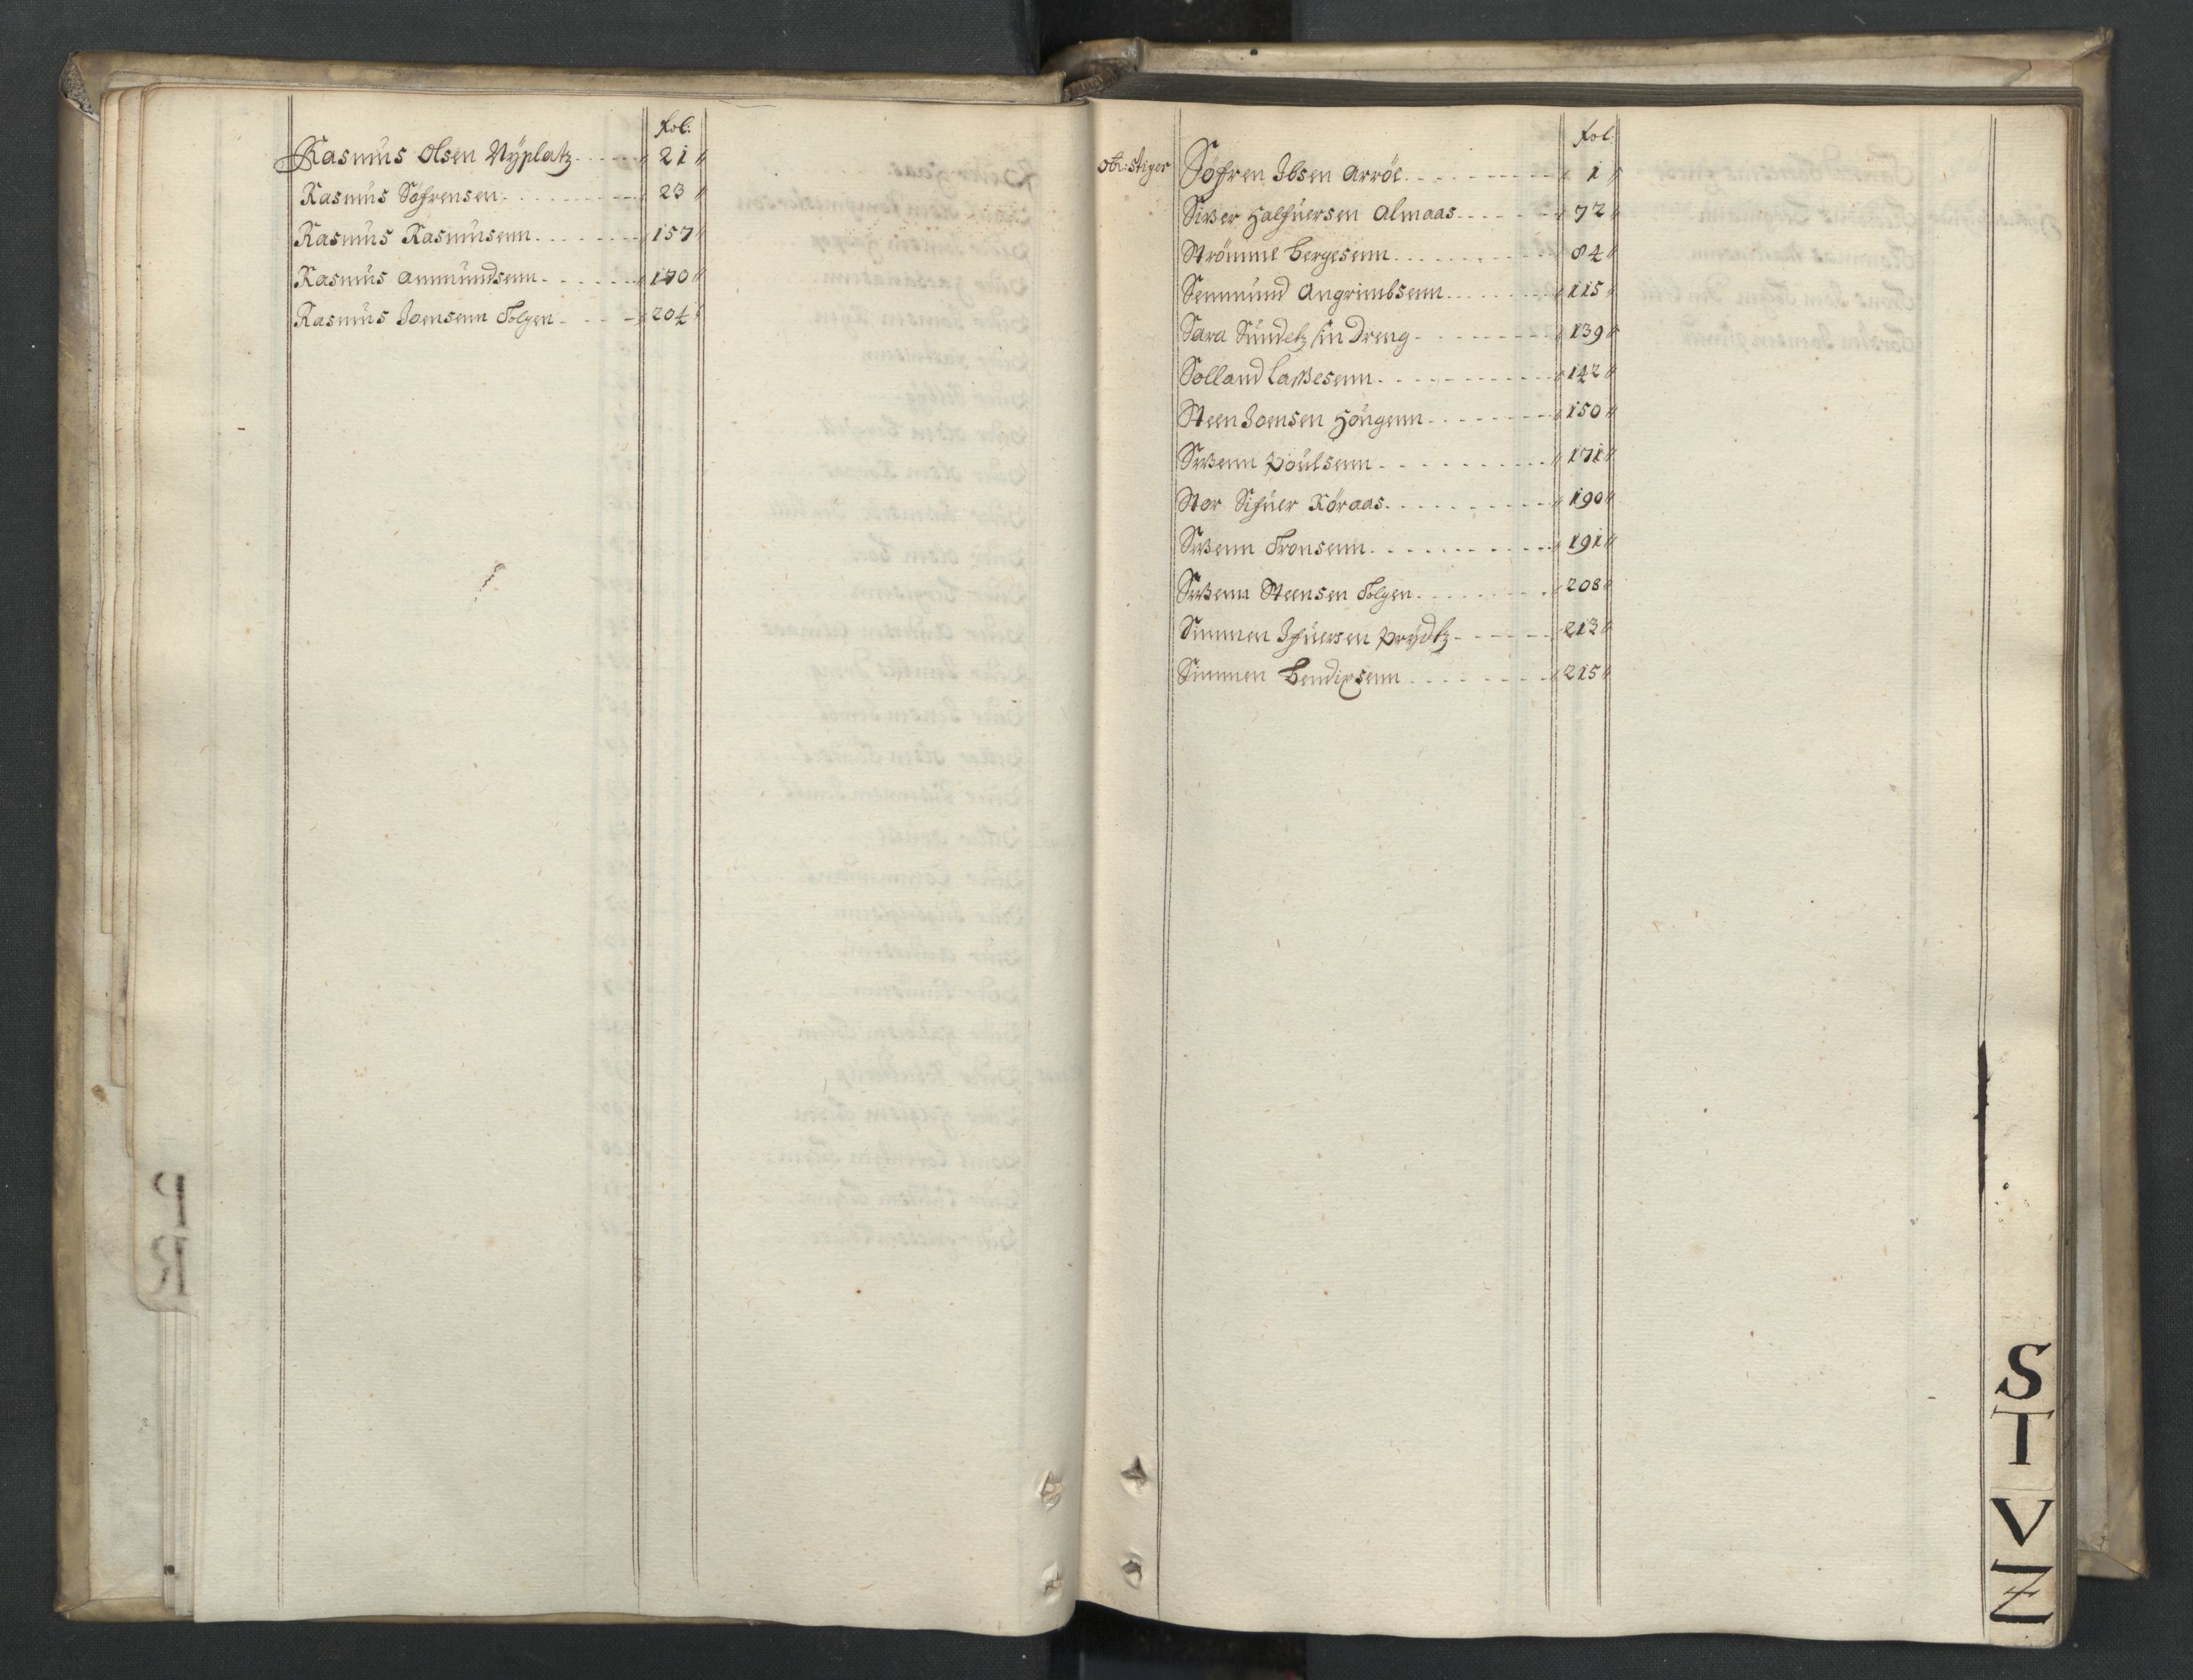 Fol:
Rasmus Olsen Nÿplatz - - - - - 21
Rasmus Söfrensen - - - - - 23
Rasmus Rasmusenn - - - - - 157
Rasmus Ammundsenn - - - - - 170
Rasmus Joensenn Tolgen - - - - - 204
Fol:
Ob: Stiger Söfren Ibsen Arröe - - - - - 1
Sißer Halfuersen Almaas - - - - - 72
Strömme Bergesenn - - - - - 84
Semmund Angrimbsenn - - - - - 115
Sara Sundetz sin Dreng - - - - - 139
Solland Laßesenn - - - - - 142
Steen Joensen Hougenn - - - - - 150
Swenn Poulsenn - - - - - 171
Stor Sifuer Röraas - - - - - 190
Swenn Tronsenn - - - - - 191
Swenn Steensen Tolgen - - - - - 208
Simmen Ifuersen Prÿdtz - - - - - 213
Simmen Bendixsenn - - - - - 215
S
T
V
Z